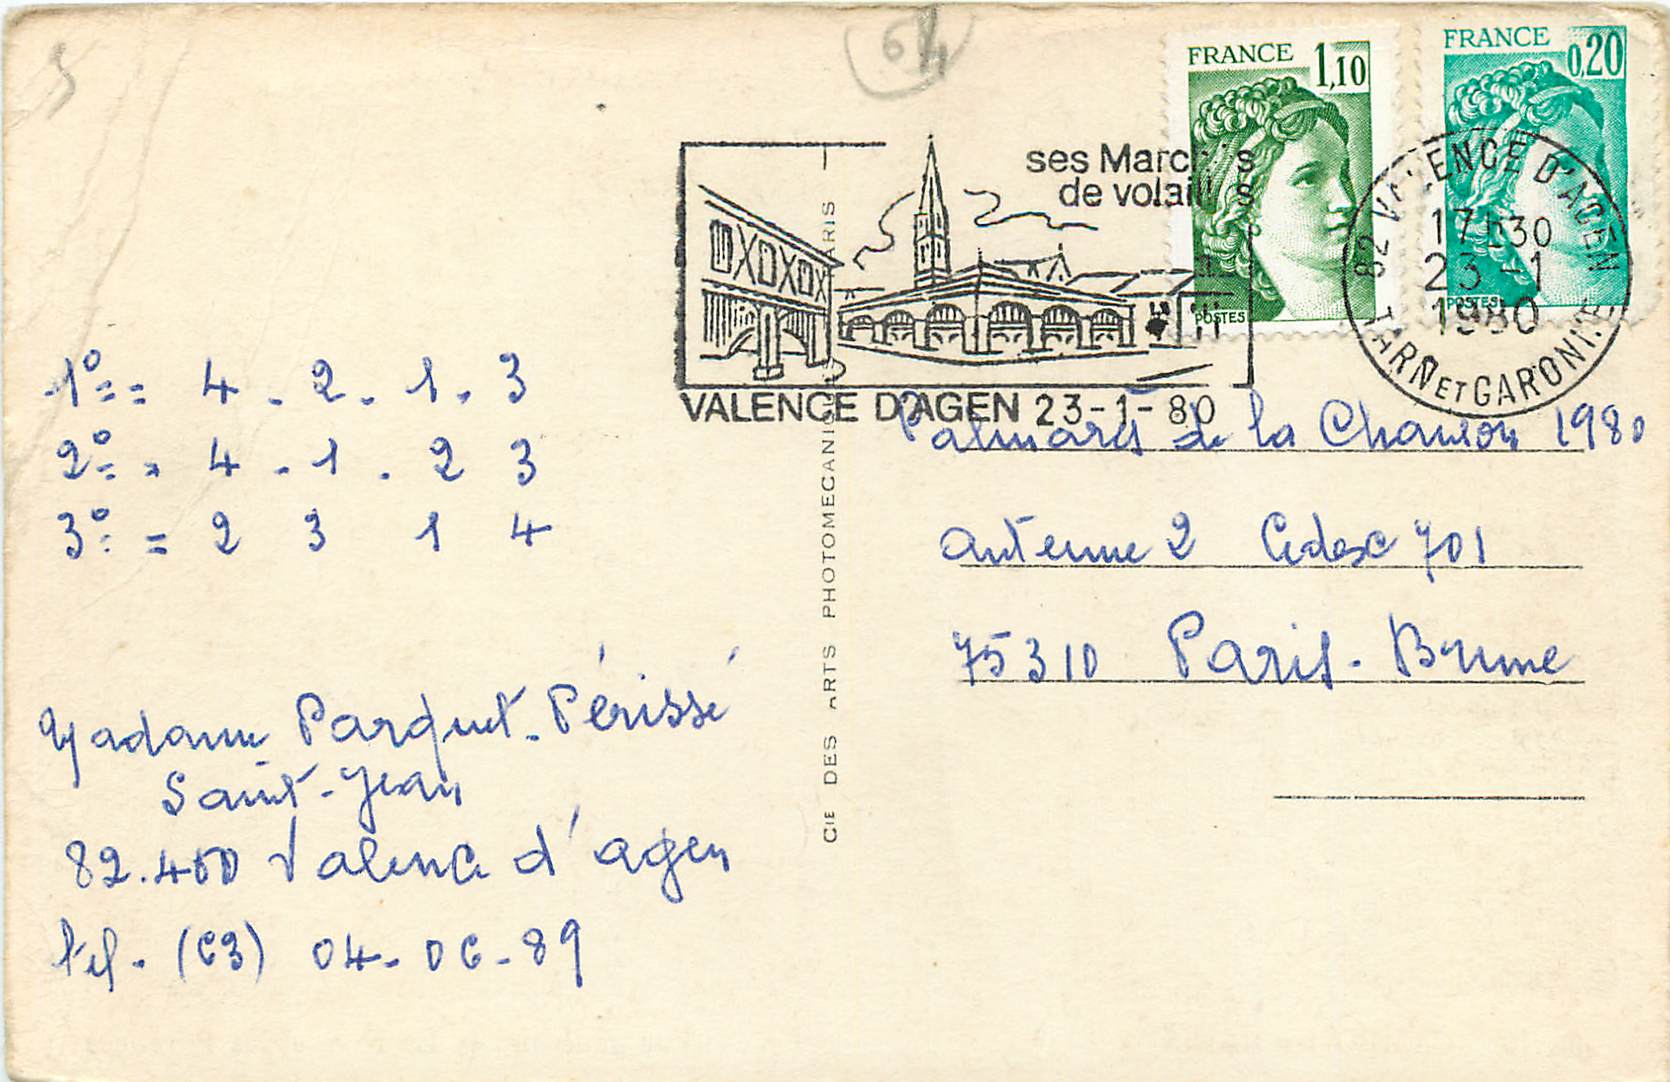 64
FRANCE 1,10
POSTES
FRANCE 0,20
POSTES
ses Marchés
de volailles
VALENCE D'AGEN 23-1-80
82 VALENCE D'AGEN
17H30
23 -1
1980
TARN ET GARONNE
1° = = 4 . 2 . 1 . 3
2° = = 4 . 1 . 2 3
3° : = 2 3 1 4
Madame Parquet-Périssé
Saint-Jean
82.400 Valence d'agen
tel. (63) 04-06-89
CIE DES ARTS PHOTOMECANIQUES PARIS
Palmarès de la Chanson 1980
antenne 2 Cedex 701
75310 Paris-Brune